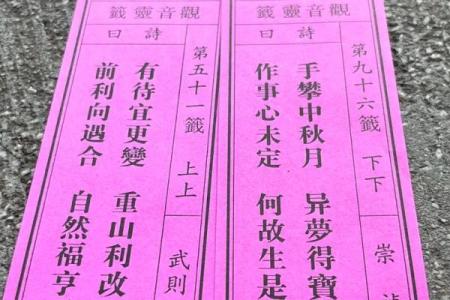 觀音靈籤
第九十六籤 下下 崇
詩曰
手攀中秋月 异夢得寶
作事心未定 何故生是
觀音靈籤
第五十一籤 上上 武則
詩曰
有待宜更變 重山利改
前利向遇合 自然福亨